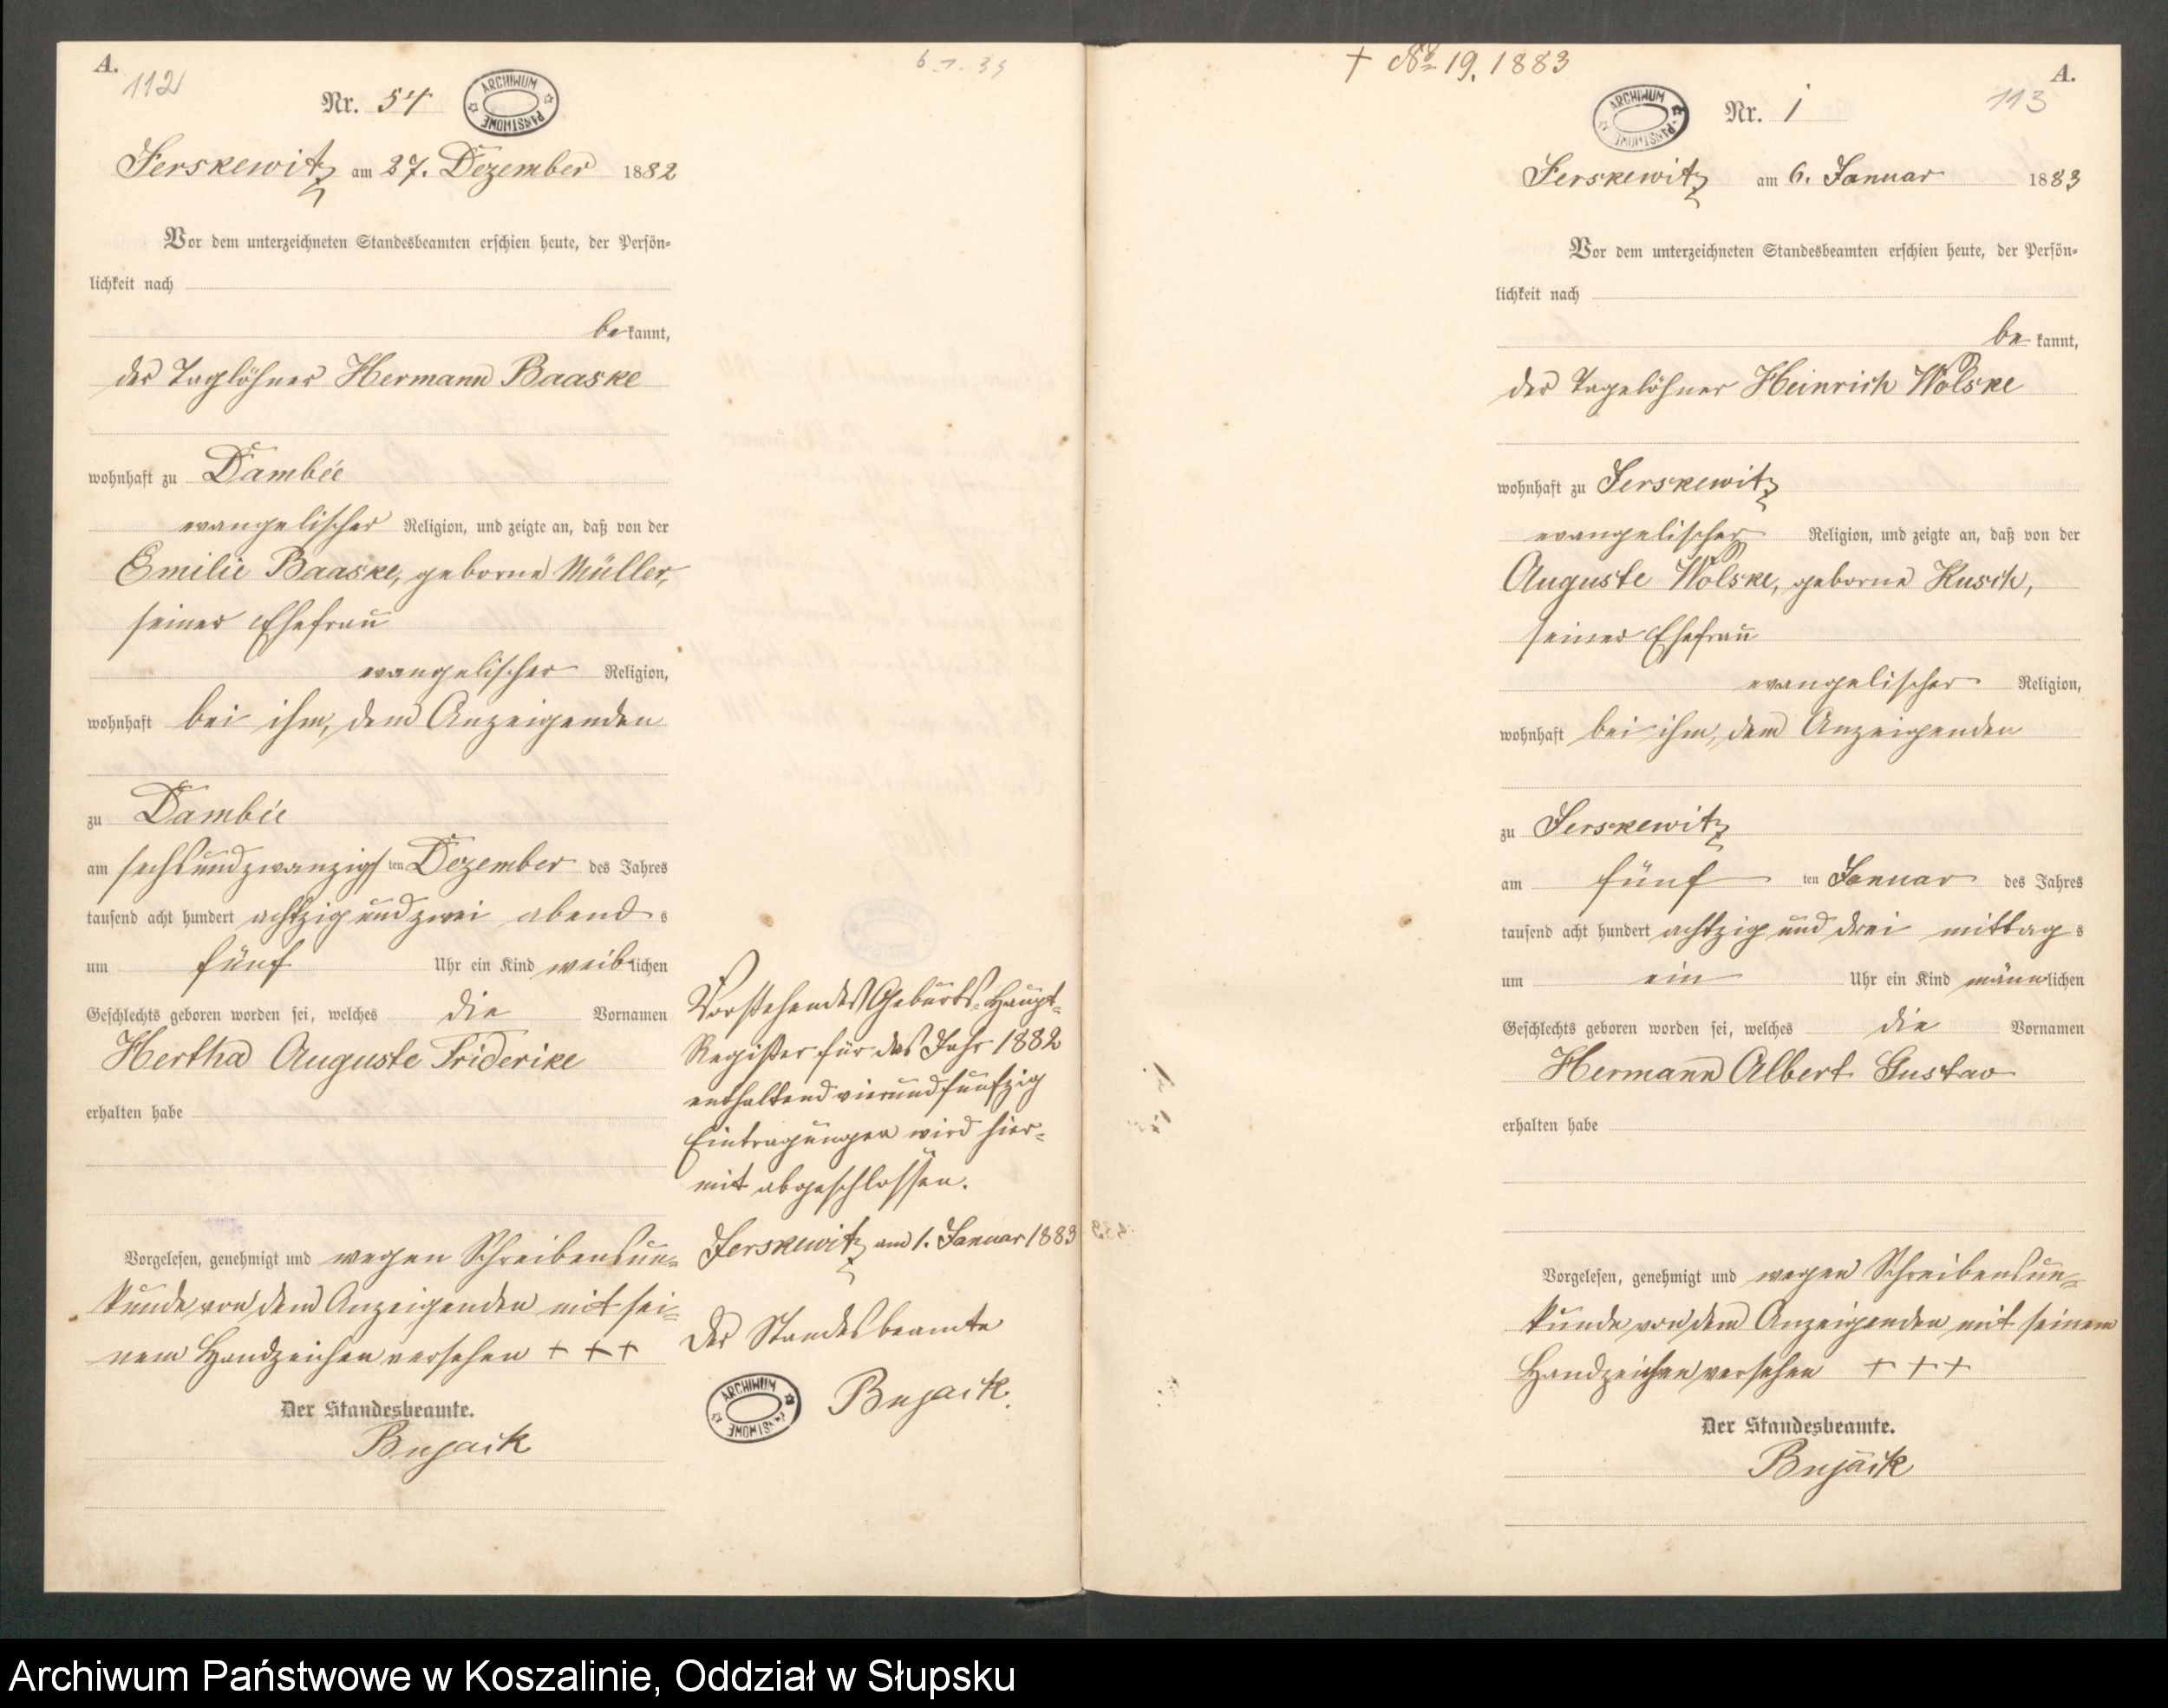 A.
112
6.1.34
Nr. 54
ARCHIWUM PAŃSTWOWE
Jerskewitz am 27. Dezember 1882
Vor dem unterzeichneten Standesbeamten erschien heute, der Persön-
lichkeit nach
bekannt,
der Taglöhner Hermann Baaske
wohnhaft zu Dambée
evangelischer Religion, und zeigte an, daß von der
Emilie Baaske, geborne Müller,
seiner Ehefrau
evangelischer Religion,
wohnhaft bei ihm, dem Anzeigenden
zu Dambée
am sechsundzwanzigsten Dezember des Jahres
tausend acht hundert achtzig und zwei abends
um fünf Uhr ein Kind weiblichen
Geschlechts geboren worden sei, welches die Vornamen
Hertha Auguste Friderike
erhalten habe
Vorgelesen, genehmigt und wegen Schreibensun-
kunde von dem Anzeigenden mit sei-
nem Handzeichen versehen + + +
Der Standesbeamte.
Bujack
Vorstehendes Geburts-Haupt-
Register für das Jahr 1882
enthaltend vierundfünfzig
Eintragungen wird hier-
mit abgeschlossen.
Jerskewitz, am 1. Januar 1883
Der Standesbeamte
ARCHIWUM PAŃSTWOWE
Bujack.
+ No 19. 1883
A.
113
ARCHIWUM PAŃSTWOWE
Nr. 1
Jerskewitz am 6. Januar 1883
Vor dem unterzeichneten Standesbeamten erschien heute, der Persön-
lichkeit nach
bekannt,
der Tagelöhner Heinrich Wolske
wohnhaft zu Jerskewitz
evangelischer Religion, und zeigte an, daß von der
Auguste Wolske, geborne Kusch,
seiner Ehefrau
evangelischer Religion,
wohnhaft bei ihm, dem Anzeigenden
zu Jerskewitz
am fünf ten Januar des Jahres
tausend acht hundert achtzig und drei mittags
um ein Uhr ein Kind männlichen
Geschlechts geboren worden sei, welches die Vornamen
Hermann Albert Gustav
erhalten habe
Vorgelesen, genehmigt und wegen Schreibensun-
kunde von dem Anzeigenden mit seinem
Handzeichen versehen + + +
Der Standesbeamte.
Bujack
Archiwum Państwowe w Koszalinie, Oddział w Słupsku